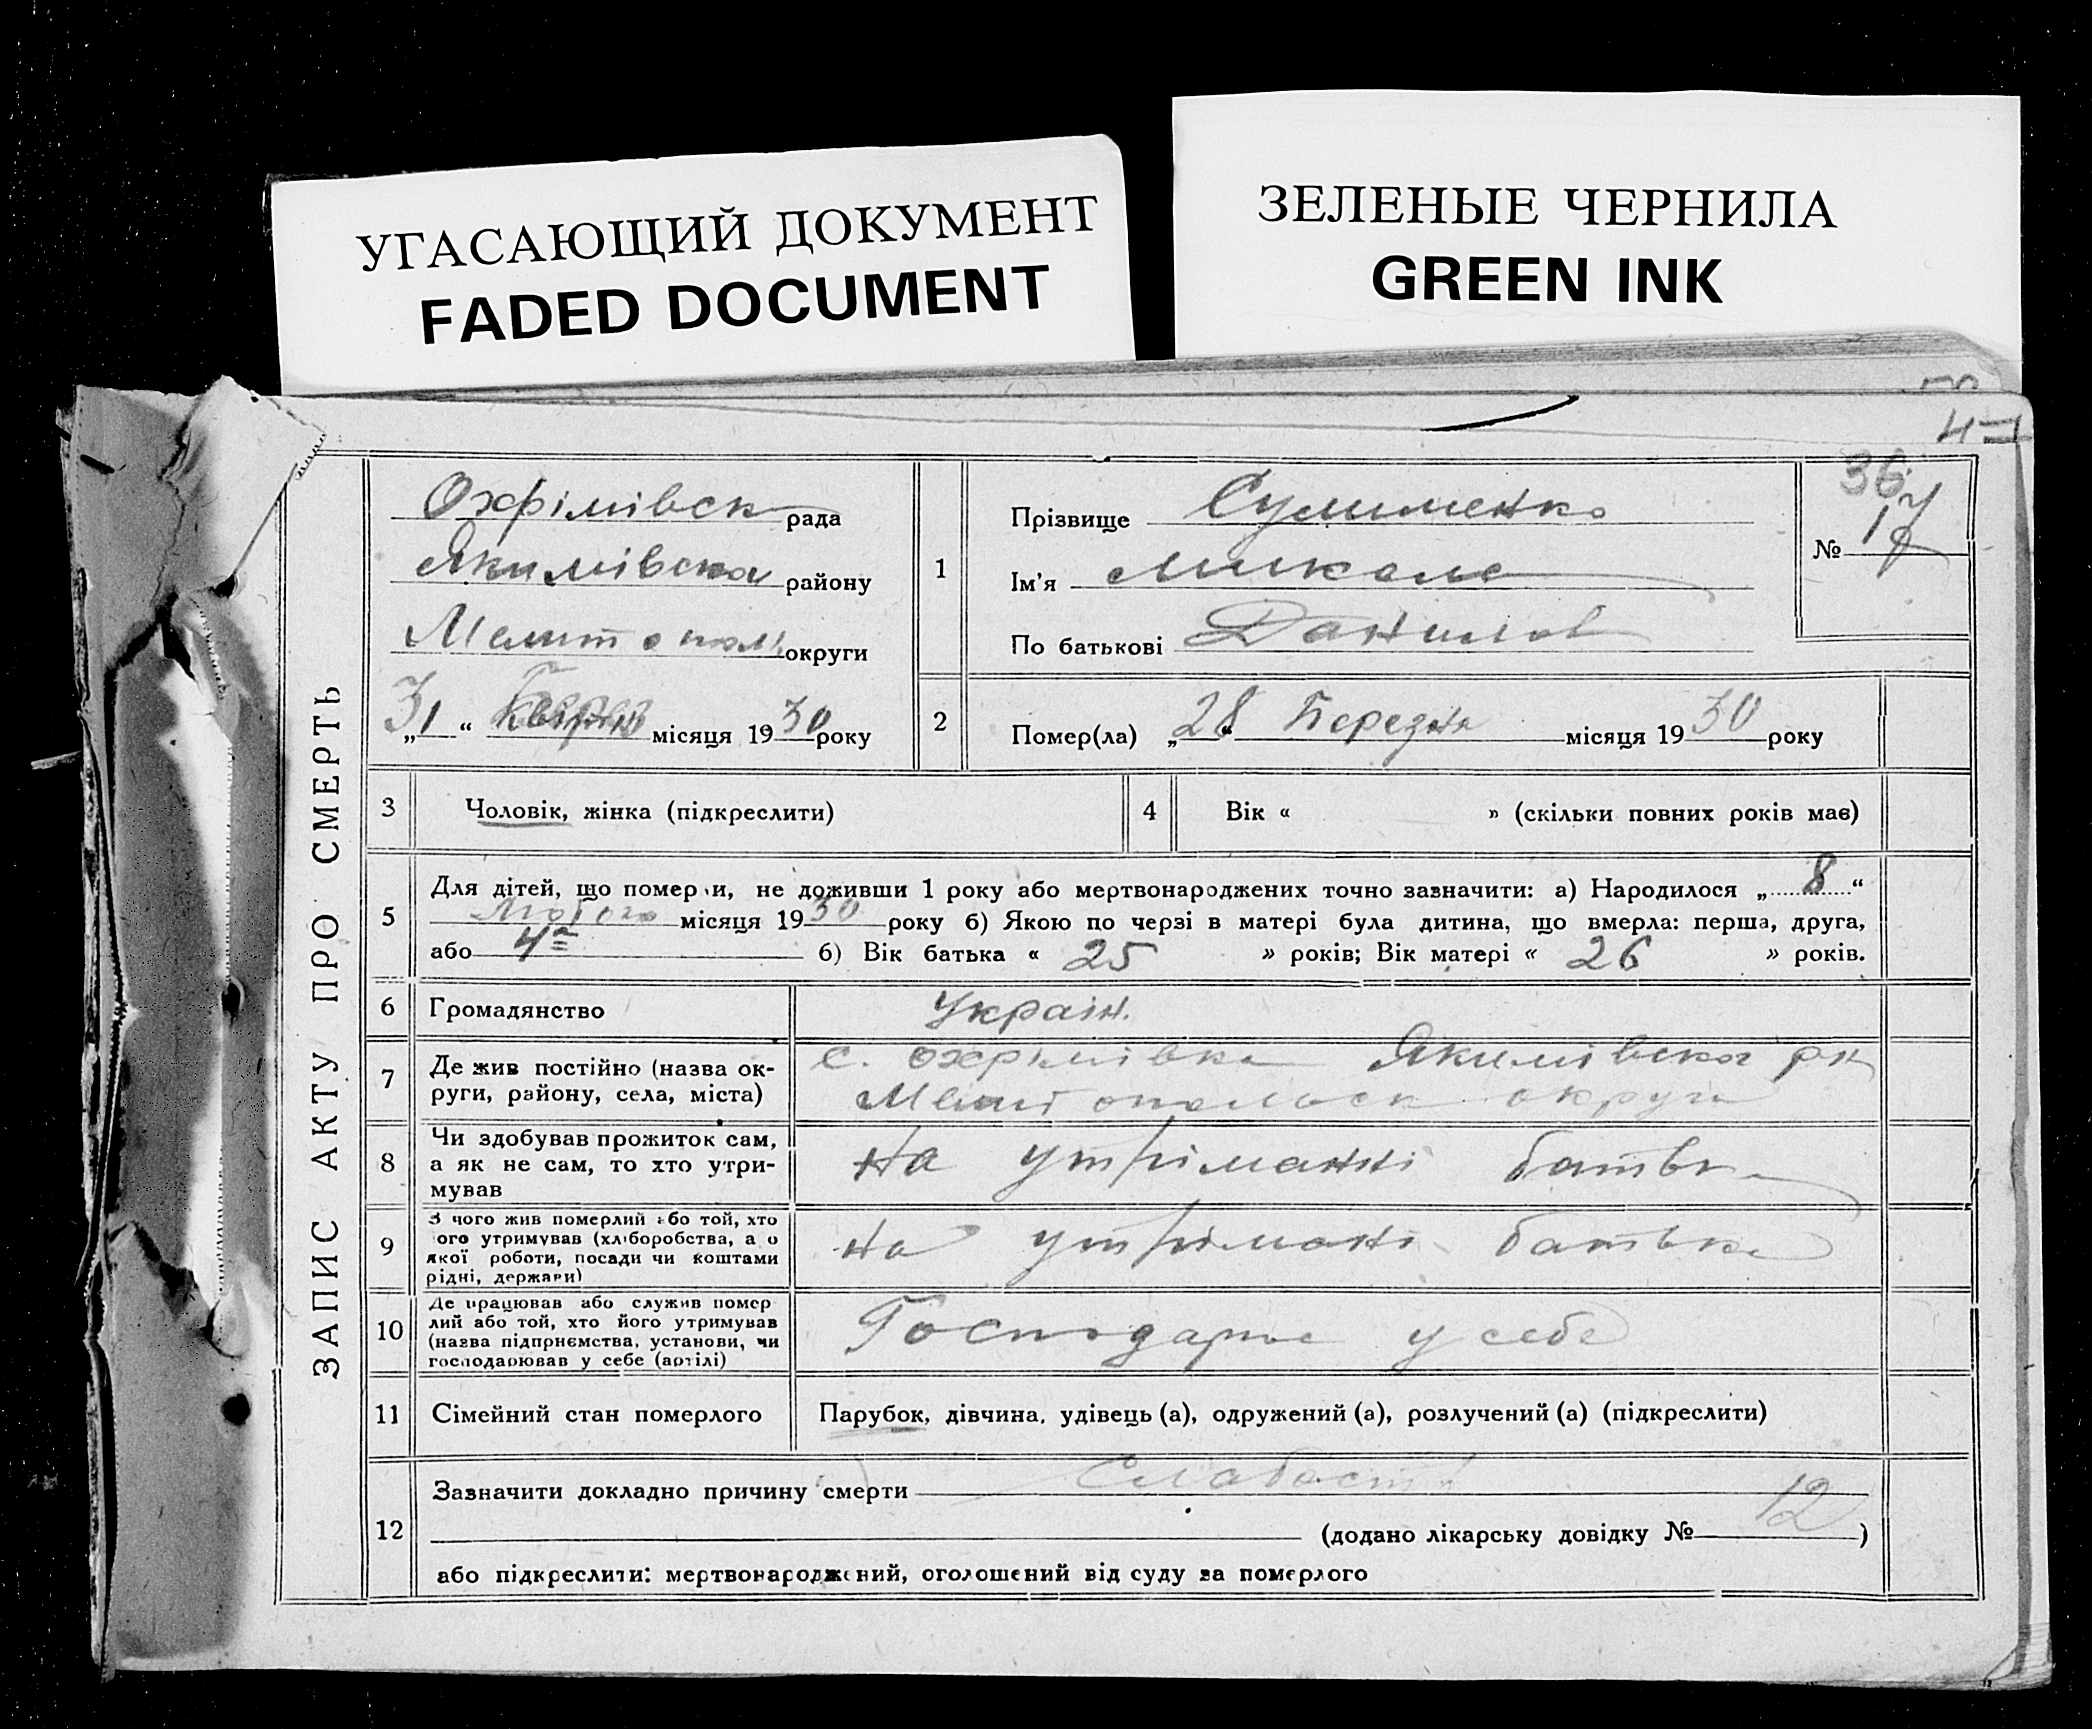 УГАСАЮЩИЙ ДОКУМЕНТ
FADED DOCUMENT
ЗЕЛЕНЫЕ ЧЕРНИЛА
GREEN INK
47
36
ЗАПИС АКТУ ПРО СМЕРТЬ
Охрімівськ рада
Якимівська району
Мелитопол округи
„31“ місяця 1930 року
1
Прізвище Сулименко
Ім'я Микола
По батькові Данилов
№ 17
2
Помер(ла) „28“ Березня місяця 1930 року
3
Чоловік, жінка (підкреслити)
4
Вік « » (скільки повних років має)
5
Для дітей, що померли, не доживши 1 року або мертвонароджених точно зазначити: а) Народилося „8“
Лютого місяця 1930 року б) Якою по черзі в матері була дитина, що вмерла: перша, друга,
або 4а б) Вік батька « 25 » років; Вік матері « 26 » років.
6
Громадянство
Україн.
7
Де жив постійно (назва ок-
руги, району, села, міста)
с. Охрімівка Якимівська рн
Мелітопольськ округи
8
Чи здобував прожиток сам,
а як не сам, то хто утри-
мував
на утріманні батьк
9
З чого жив померлий або той, хто
ого утримував (хліборобства, а о
якої роботи, посади чи коштами
рідні, держави)
на утрімані батька
10
Де працював або служив помер
лий або той, хто його утримував
(назва підприємства, установи, чи
господарював у себе (артілі)
Господарює у себе
11
Сімейний стан померлого
Парубок, дівчина, удівець (а), одружений (а), розлучений (а) (підкреслити)
12
Зазначити докладно причину смерти Слабость
(додано лікарську довідку № 12)
або підкреслити: мертвонароджений, оголошений від суду за померлого